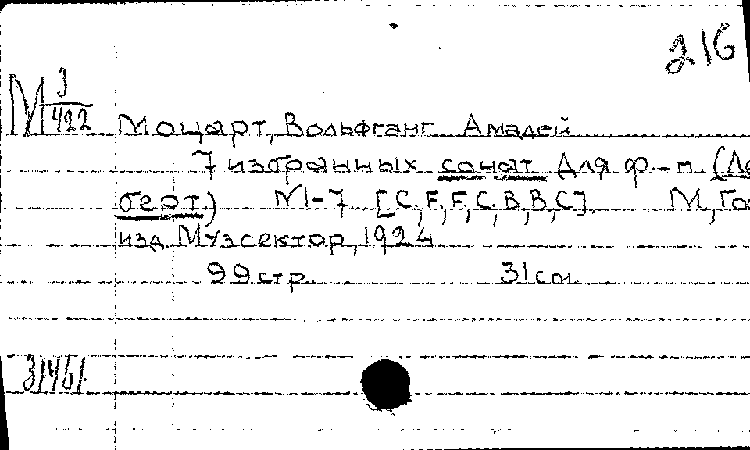 216
М 3/422
Моцарт, Вольфганг Амадей
7 избранных сонат для ф.-п. (Ла
берт.) №1-7 [C, F, F, C, B, B, C]. М, Гос
изд Музсектор, 1924
99 стр. 31 см.
31451